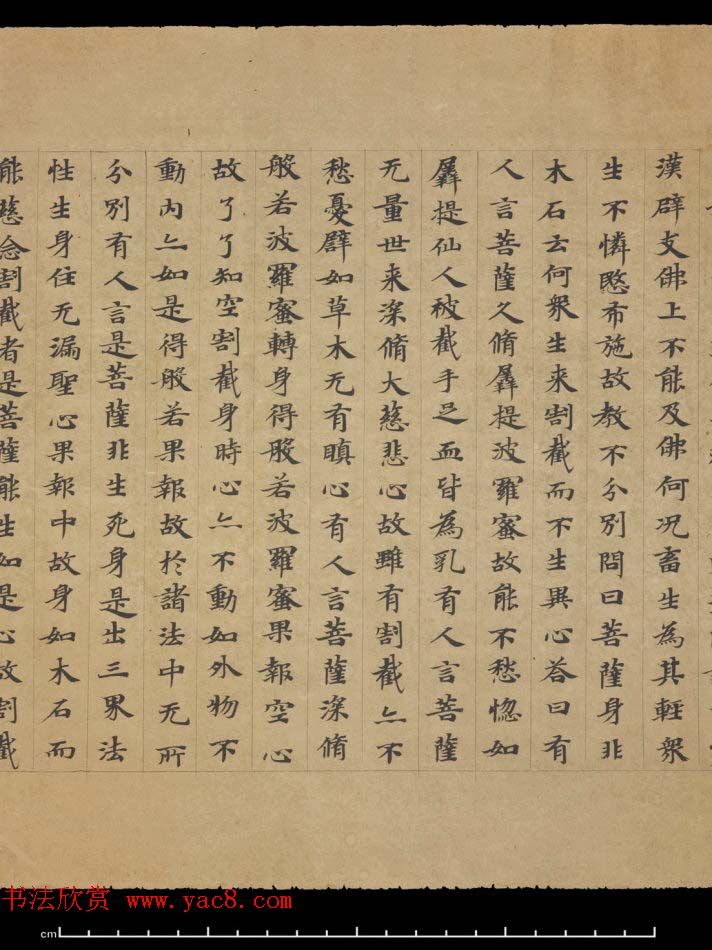 漢辟支佛上不能及佛何况畜生為其輕衆
生不憐愍布施故教不分別問曰菩薩身非
木石云何衆生来割截而不生異心荅曰有
人言菩薩久脩羼提波羅蜜故能不愁惱如
羼提仙人被截手足血皆為乳有人言菩薩
无量世来深脩大慈悲心故雖有割截亦不
愁憂譬如草木无有瞋心有人言菩薩深脩
般若波羅蜜轉身得般若波羅蜜果報空心
故了了知空割截身時心亦不動如外物不
動内亦如是得般若果報故於諸法中无所
分別有人言是菩薩非生死身是出三界法
性生身住无漏聖心果報中故身如木石而
能慈念割截者是菩薩能生如是心故割截
书法欣赏 www.yac8.com
cm